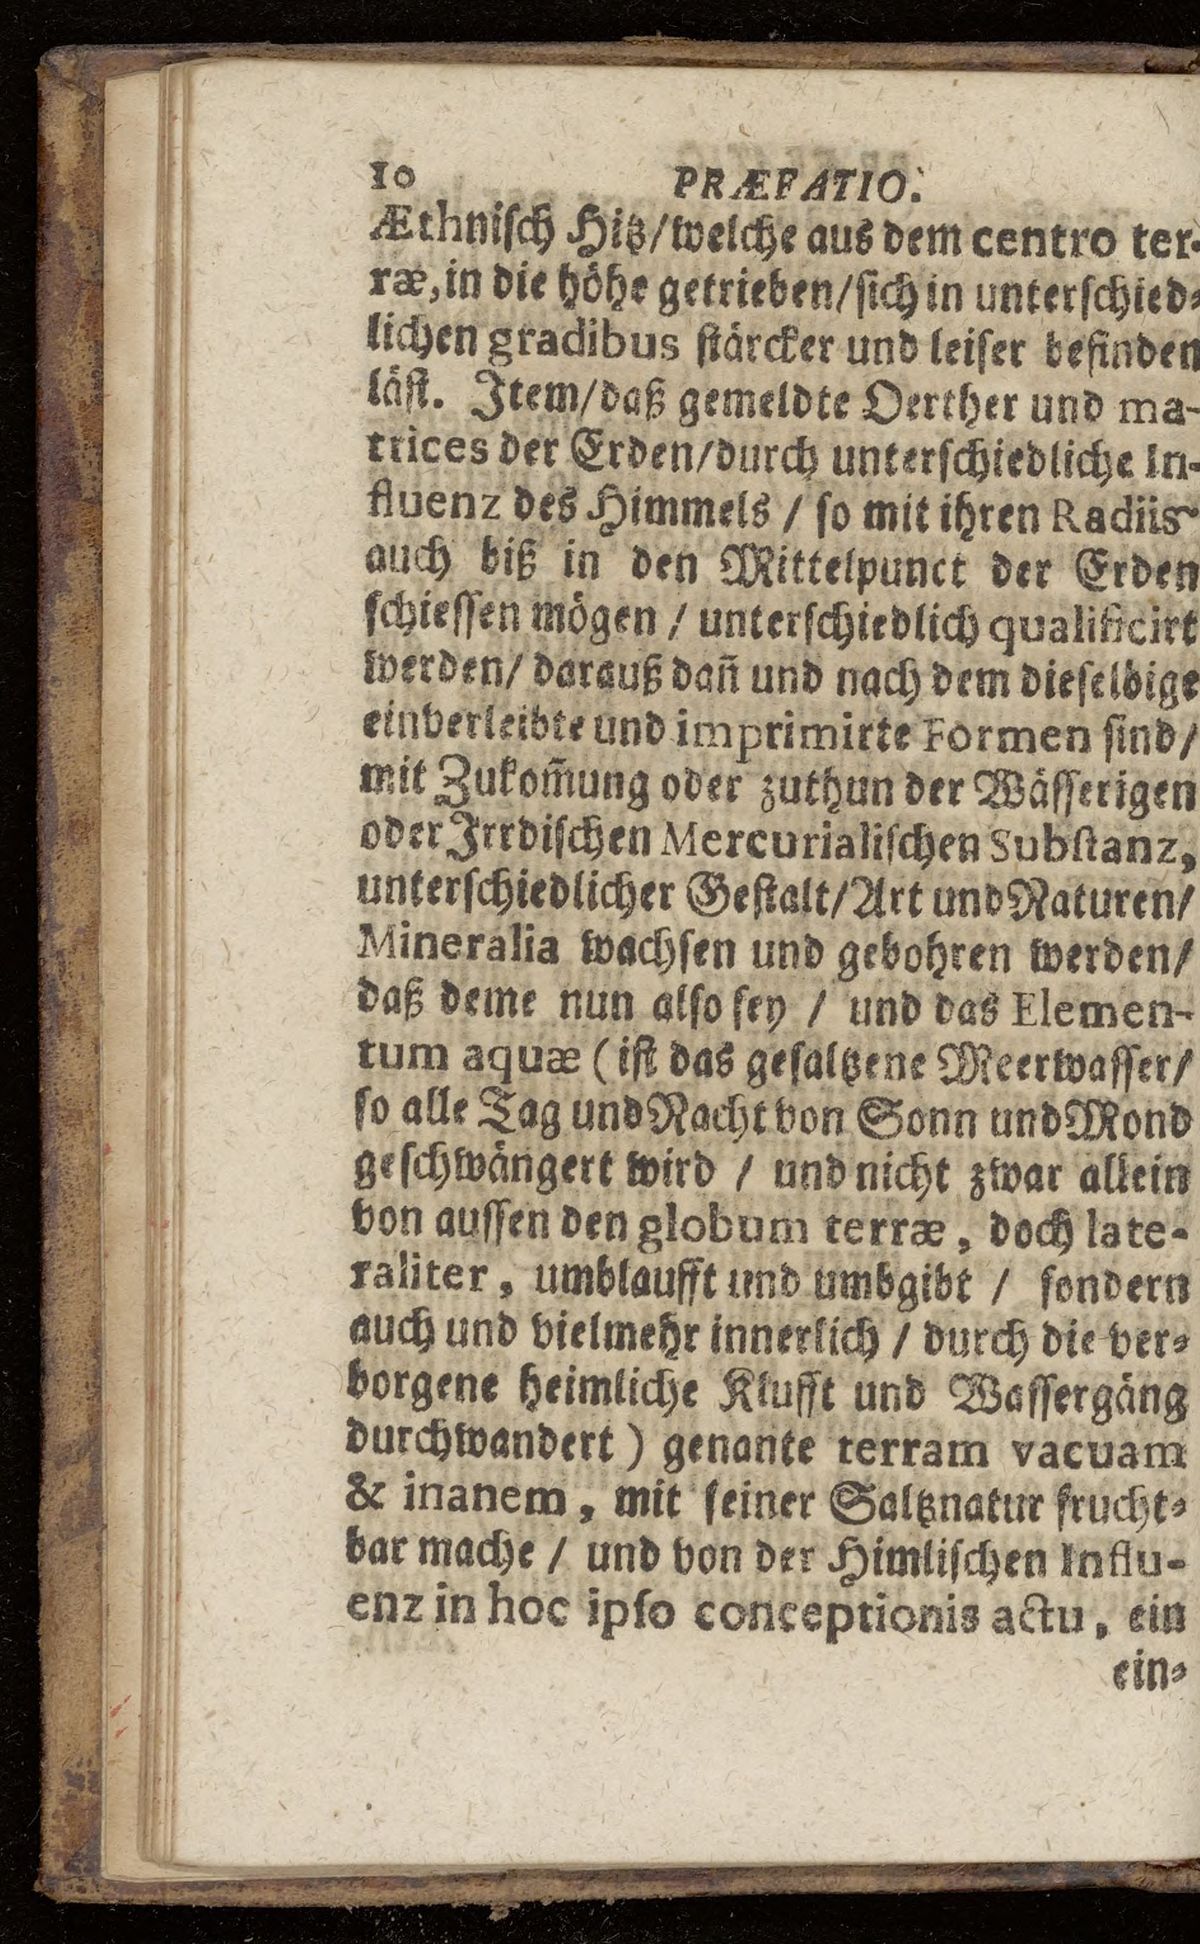 10 PRÆFATIO.
Æthnisch Hitz/welche aus dem centro ter-
ræ,in die höhe getrieben/sich in unterschied-
lichen gradibus stärcker und leiser befinden
läst. Item/daß gemeldte Oerther und ma-
trices der Erden/durch unterschiedliche In-
fluenz des Himmels / so mit ihren Radiis
auch biß in den Mittelpunct der Erden
schiessen mögen / unterschiedlich qualificirt
werden/ darauß dañ und nach dem dieselbige
einverleibte und imprimirte Formen sind/
mit Zukom̄ung oder zuthun der Wässerigen
oder Irrdischen Mercurialischen Substanz,
unterschiedlicher Gestalt/Art und Naturen/
Mineralia wachsen und gebohren werden/
daß deme nun also sey / und das Elemen-
tum aquæ (ist das gesaltzene Meerwasser/
so alle Tag und Nacht von Sonn und Mond
geschwängert wird / und nicht zwar allein
von aussen den globum terræ, doch late-
raliter, umblaufft und umbgibt / sondern
auch und vielmehr innerlich / durch die ver-
borgene heimliche Klufft und Wassergäng
durchwandert) genante terram vacuam
& inanem, mit seiner Saltznatur frucht-
bar mache / und von der Himlischen Influ-
enz in hoc ipso conceptionis actu, ein
ein-